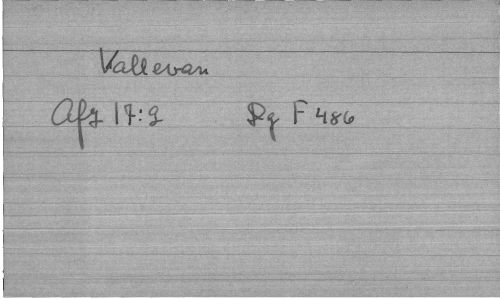 Vallevan
Afz 17:2 Rg F 486